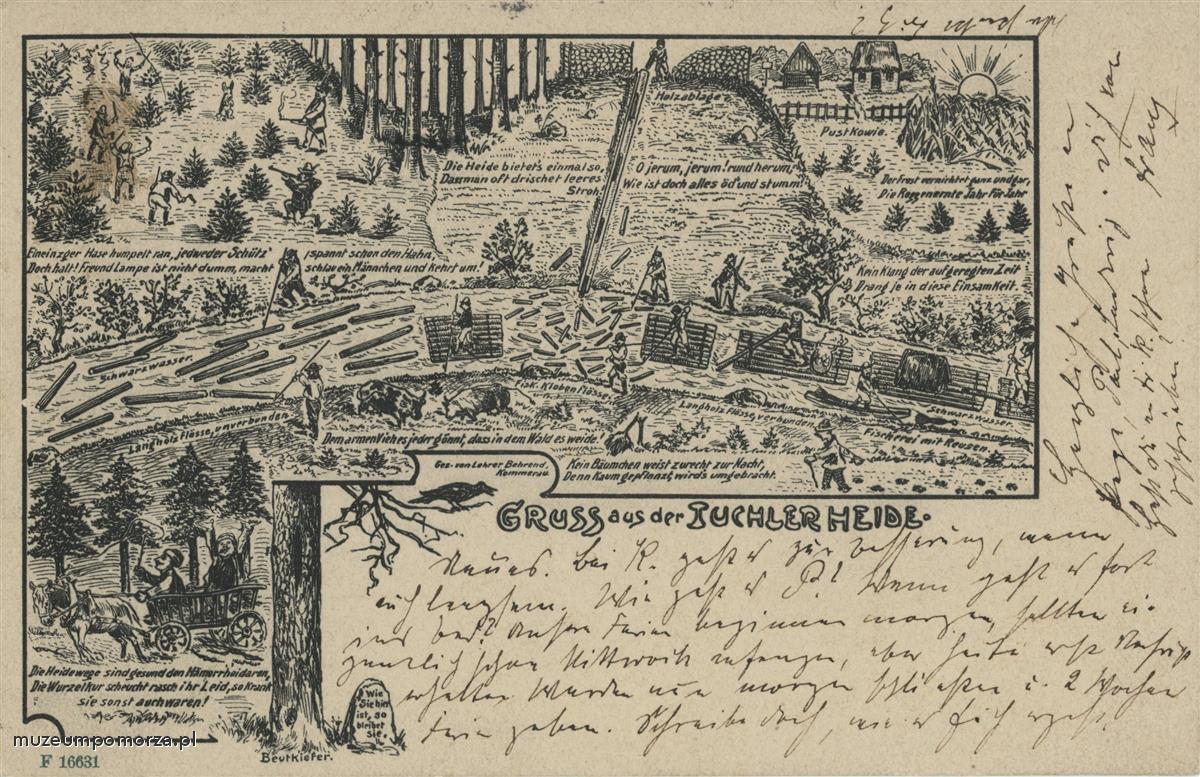 Holzablage
Pustkowie.
Die Heide bietet's einmal so,
Dass man oft drischet leeres
Stroh.
O jerum, jerum! rund herum,
Wie ist doch alles öd' und stumm!
Der Frost vernichtet ganz und gar,
Die Roggenernte Jahr für Jahr
Ein einz'ger Hase humpelt ran, jedweder Schütz' spannt schon den Hahn,
Doch halt! Freund Lampe ist nicht dumm, macht schlau ein Männchen und kehrt um!
Kein Klang der aufgeregten Zeit
Drang je in diese Einsamkeit.
Schwarzwasser.
Fisk. Kloben flösse.
Langholz Flösse, unverbunden
Langholz Flösse, verbunden
Schwarzwasser.
Fischerei mit Reusen.
Dem armen Vieh es jeder gönnt, dass in dem Wald es weide!
Gez. von Lehrer Behrend,
Kommerau
Kein Bäumchen weist zurecht zur Nacht,
Denn kaum gepflanzt, wird's umgebracht.
GRUSS aus der TUCHLER HEIDE.
Die Heidewege sind gesund den Hämorrhoidaren,
Die Wurzelkur scheucht rasch ihr Leid, so krank
sie sonst auch waren!
Wie
Sie hin
ist, so
bleibet
Sie.
Beutkiefer.
Herzliche
Neues. Bei K. geht es zur Besserung, wenn
auch langsam. Wie geht es P.? Wann geht er fort
ins Bad? Unsere Ferien beginnen morgen, sollten
schon Mittwoch anfangen, aber heute erst
erhalten. Werden nun morgen schließen u. 2 Wochen
Ferien geben. Schreibe doch, wie es
muzeumpomorza.pl
F 16631